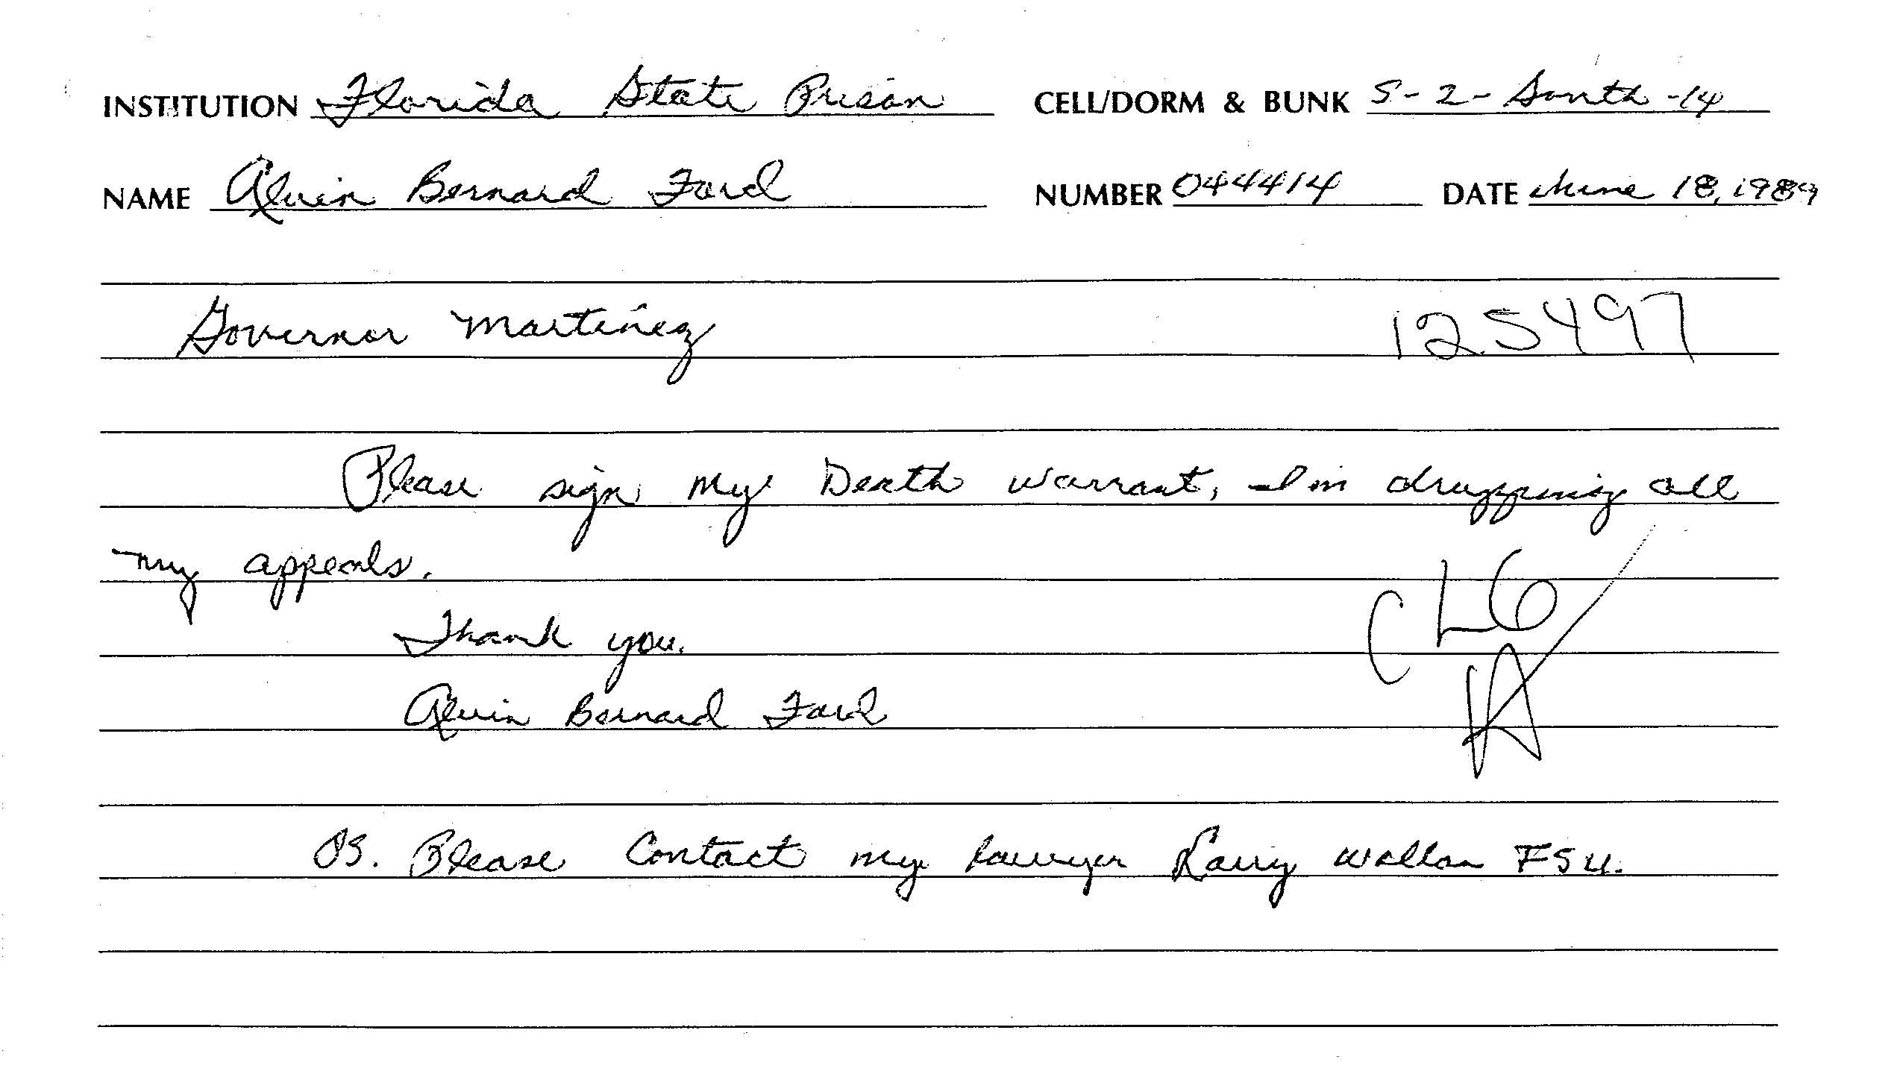 INSTITUTION Florida State Prison CELL/DORM & BUNK S-2-South-14
NAME Alvin Bernard Ford NUMBER 044414 DATE June 18, 1989
Governor Martinez 125497
Please sign my Death warrant, I'm dropping all
my appeals.
CLG
Thank you.
Alvin Bernard Ford
PS. Please Contact my lawyer Larry FSU.